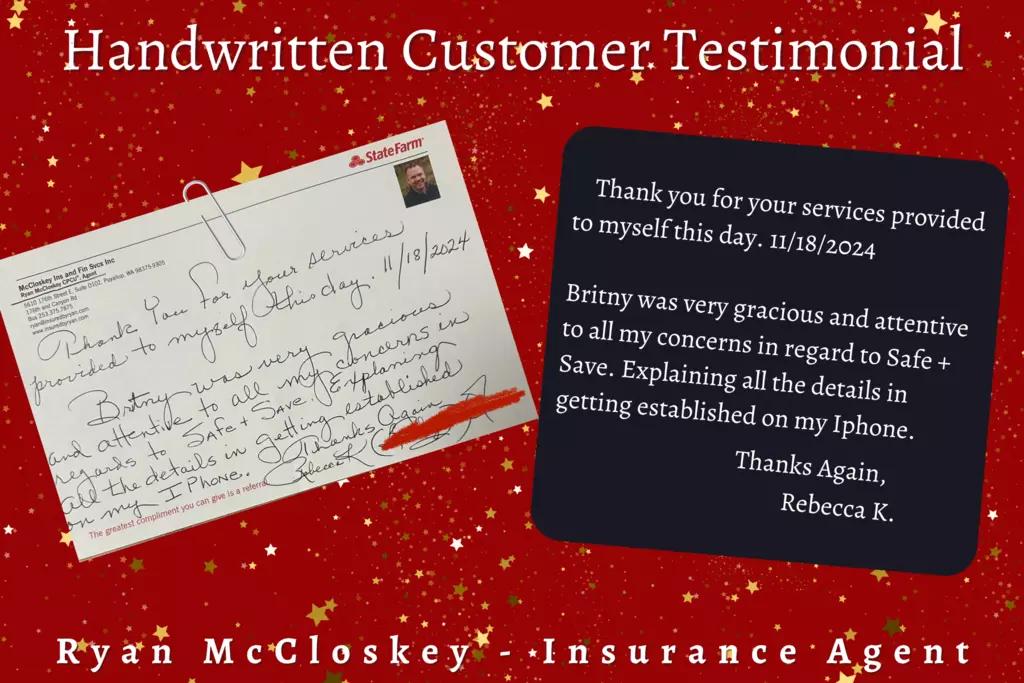 Handwritten Customer Testimonial
StateFarm
McCloskey Ins and Fin Svcs Inc
Ryan McCloskey CPCU, Agent
5610 176th Street E, Suite 0102, Puyallup, WA 98375-9305
176th and Canyon Rd
Bus 253.375.7875
ryan@insuredbyryan.com
www.insuredbyryan.com
Thank You For Your services
provided to myself this day. 11/18/2024
Britny was very gracious
and attentive to all my concerns in
regards to Safe + Save. Explaning
all the details in getting established
on my I Phone.
Thanks Again
Rebecca K
The greatest compliment you can give is a referral.
Thank you for your services provided
to myself this day. 11/18/2024
Britny was very gracious and attentive
to all my concerns in regard to Safe +
Save. Explaining all the details in
getting established on my Iphone.
Thanks Again,
Rebecca K.
Ryan McCloskey - Insurance Agent